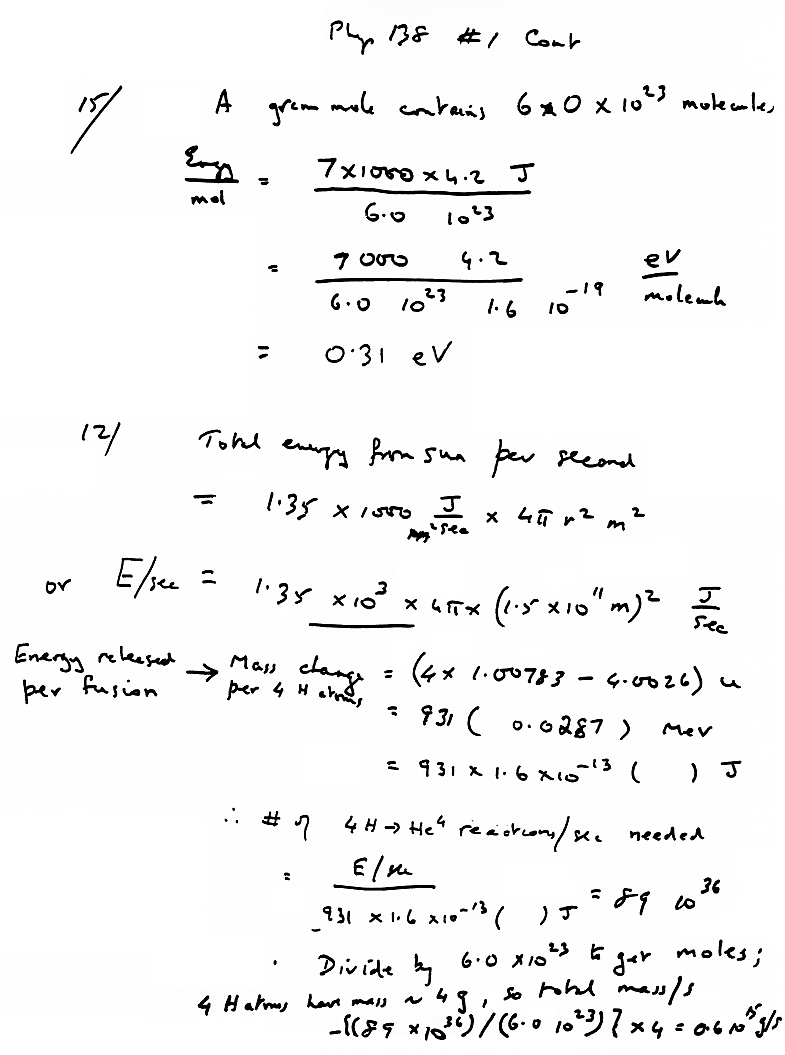 Phys 138 #1 Cont
15/ A gram mole contains 6×0 × 10²³ molecules
Energy/mol = 7×1000 × 4.2 J / 6.0 10²³
= 7000 4.2 / 6.0 10²³ 1.6 10⁻¹⁹ eV/molecule
= 0.31 eV
12/ Total energy from sun per second
= 1.35 × 1000 J/m² sec × 4π r² m²
or E/sec = 1.35 × 10³ × 4π × (1.5 × 10¹¹ m)² J/sec
Energy released per fusion → Mass change per 4 H atoms = (4 × 1.00783 − 4.0026) u
= 931 ( 0.0287 ) MeV
= 931 × 1.6 × 10⁻¹³ ( ) J
∴ # of 4H → He⁴ reactions/sec needed
= E/sec / 931 × 1.6 × 10⁻¹³ ( ) J = 89 10³⁶
. Divide by 6.0 × 10²³ to get moles;
4 H atoms have mass ~ 4 g, so total mass/s
–{(89 × 10³⁶)/(6.0 10²³)} × 4 = 0.6 10¹⁵ g/s